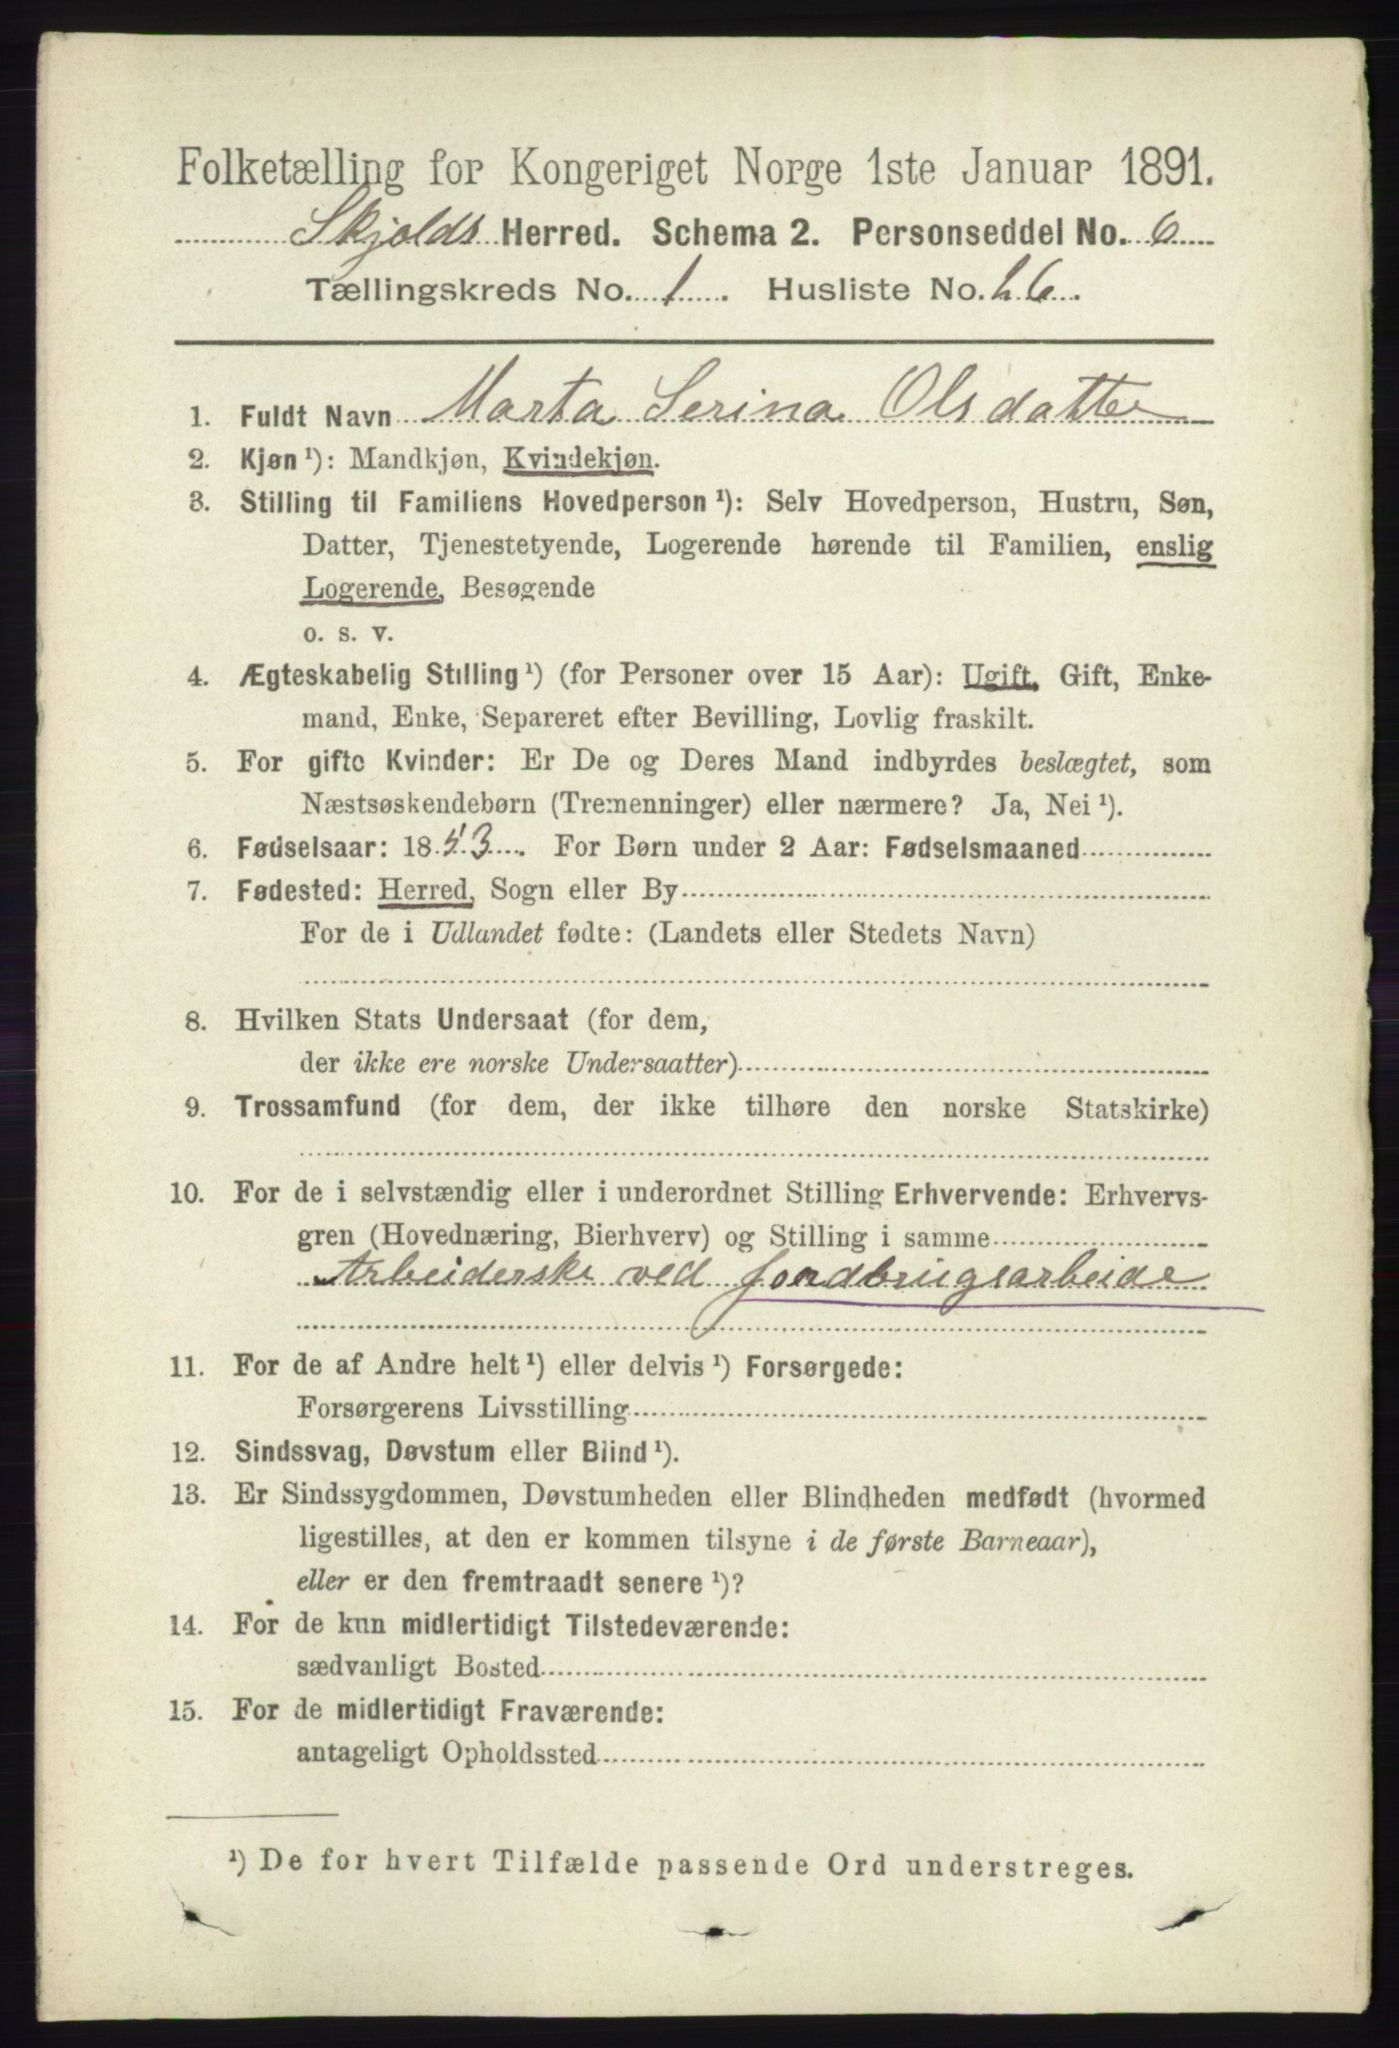 Folketælling for Kongeriget Norge 1ste Januar 1891.
Skjolds Herred. Schema 2. Personseddel No. 6
Tællingskreds No. 1. Husliste No. 26.
1. Fuldt Navn Marta Serina Olsdatter
2. Kjøn ¹): Mandkjøn, Kvindekjøn.
3. Stilling til Familiens Hovedperson ¹): Selv Hovedperson, Hustru, Søn,
Datter, Tjenestetyende, Logerende hørende til Familien, enslig
Logerende, Besøgende
o. s. v.
4. Ægteskabelig Stilling ¹) (for Personer over 15 Aar): Ugift, Gift, Enke-
mand, Enke, Separeret efter Bevilling, Lovlig fraskilt.
5. For gifte Kvinder: Er De og Deres Mand indbyrdes beslægtet, som
Næstsøskendebørn (Tremenninger) eller nærmere? Ja, Nei ¹).
6. Fødselsaar: 1853. For Børn under 2 Aar: Fødselsmaaned
7. Fødested: Herred, Sogn eller By
For de i Udlandet fødte: (Landets eller Stedets Navn)
8. Hvilken Stats Undersaat (for dem,
der ikke ere norske Undersaatter)
9. Trossamfund (for dem, der ikke tilhøre den norske Statskirke)
10. For de i selvstændig eller i underordnet Stilling Erhvervende: Erhvervs-
gren (Hovednæring, Bierhverv) og Stilling i samme
Arbeiderske ved jordbrugsarbeide
11. For de af Andre helt ¹) eller delvis ¹) Forsørgede:
Forsørgerens Livsstilling
12. Sindssvag, Døvstum eller Blind ¹).
13. Er Sindssygdommen, Døvstumheden eller Blindheden medfødt (hvormed
ligestilles, at den er kommen tilsyne i de første Barneaar),
eller er den fremtraadt senere ¹)?
14. For de kun midlertidigt Tilstedeværende:
sædvanligt Bosted
15. For de midlertidigt Fraværende:
antageligt Opholdssted
¹) De for hvert Tilfælde passende Ord understreges.